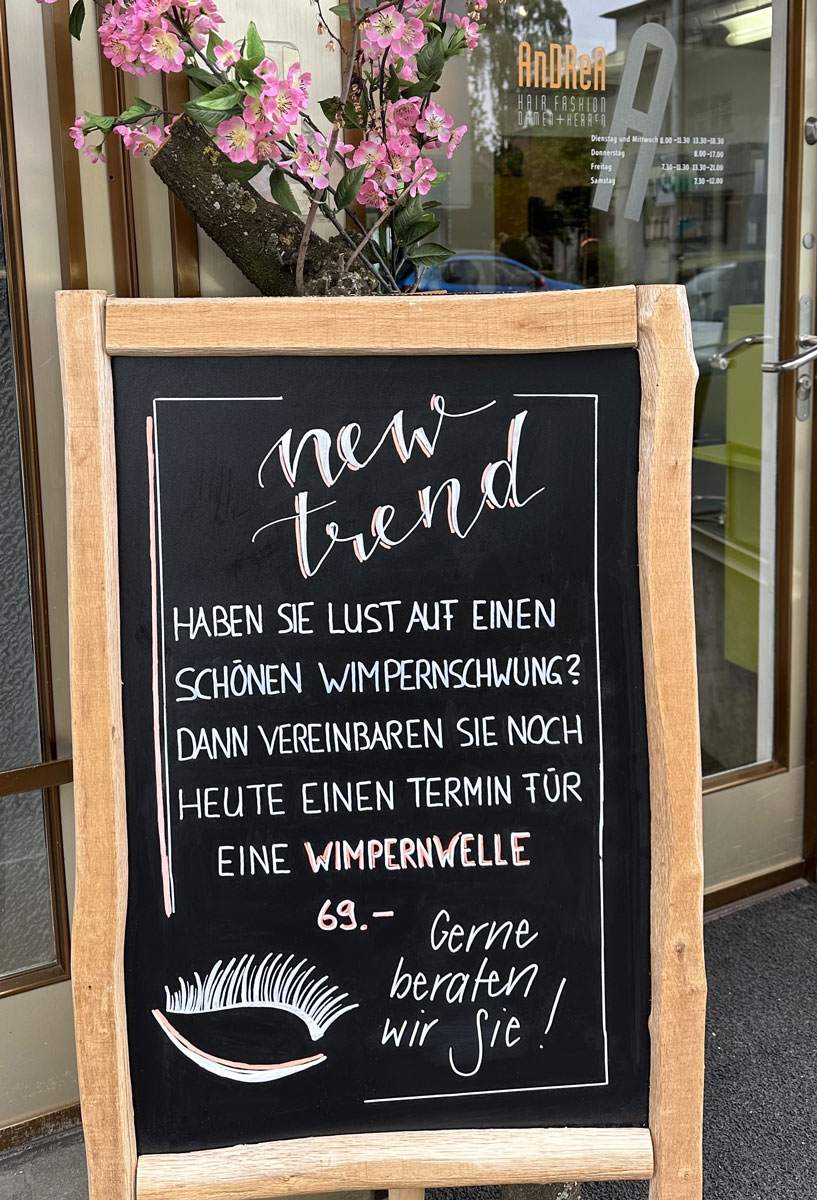 AnDReA
HAIR FASHION
DAMEN+HERREN
Dienstag und Mittwoch 8.00-11.30 13.30-18.30
Donnerstag 8.00-17.00
Freitag 7.30-11.30 13.30-21.00
Samstag 7.30-12.00
new
trend
HABEN SIE LUST AUF EINEN
SCHÖNEN WIMPERNSCHWUNG?
DANN VEREINBAREN SIE NOCH
HEUTE EINEN TERMIN FÜR
EINE WIMPERNWELLE
69.–
Gerne
beraten
wir Sie!